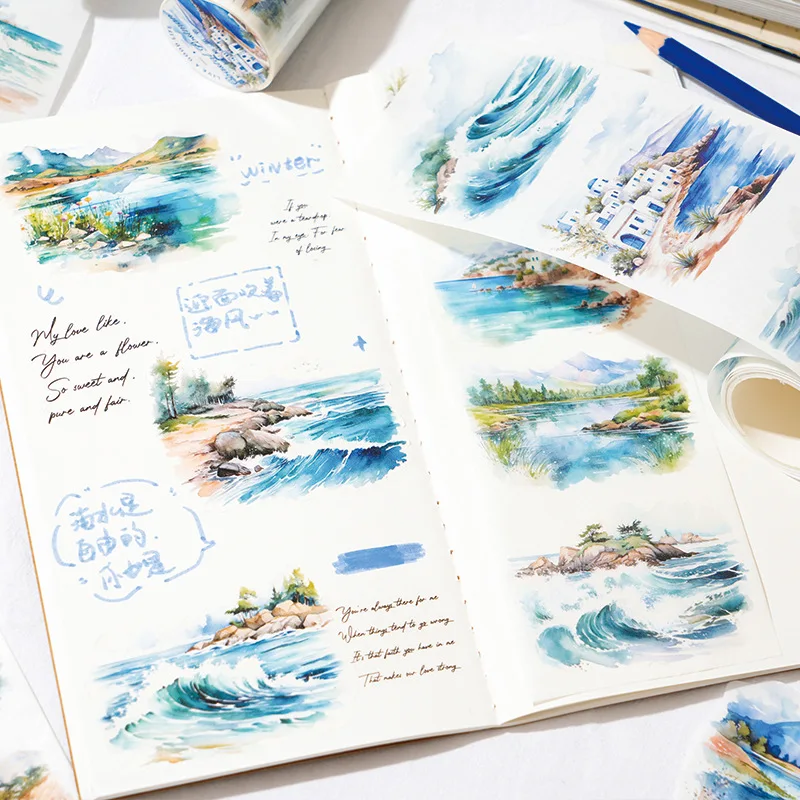 "winter"
If you
were a teardrop
In my eye. For fear
of losing.
迎面吹着
海风~~
My love like.
You are a flower.
So sweet and.
pure and fair.
海水是
自由的.
你也是
You're always there for me
When things tend to go wrong
It's that faith you have in me
That makes our love strong